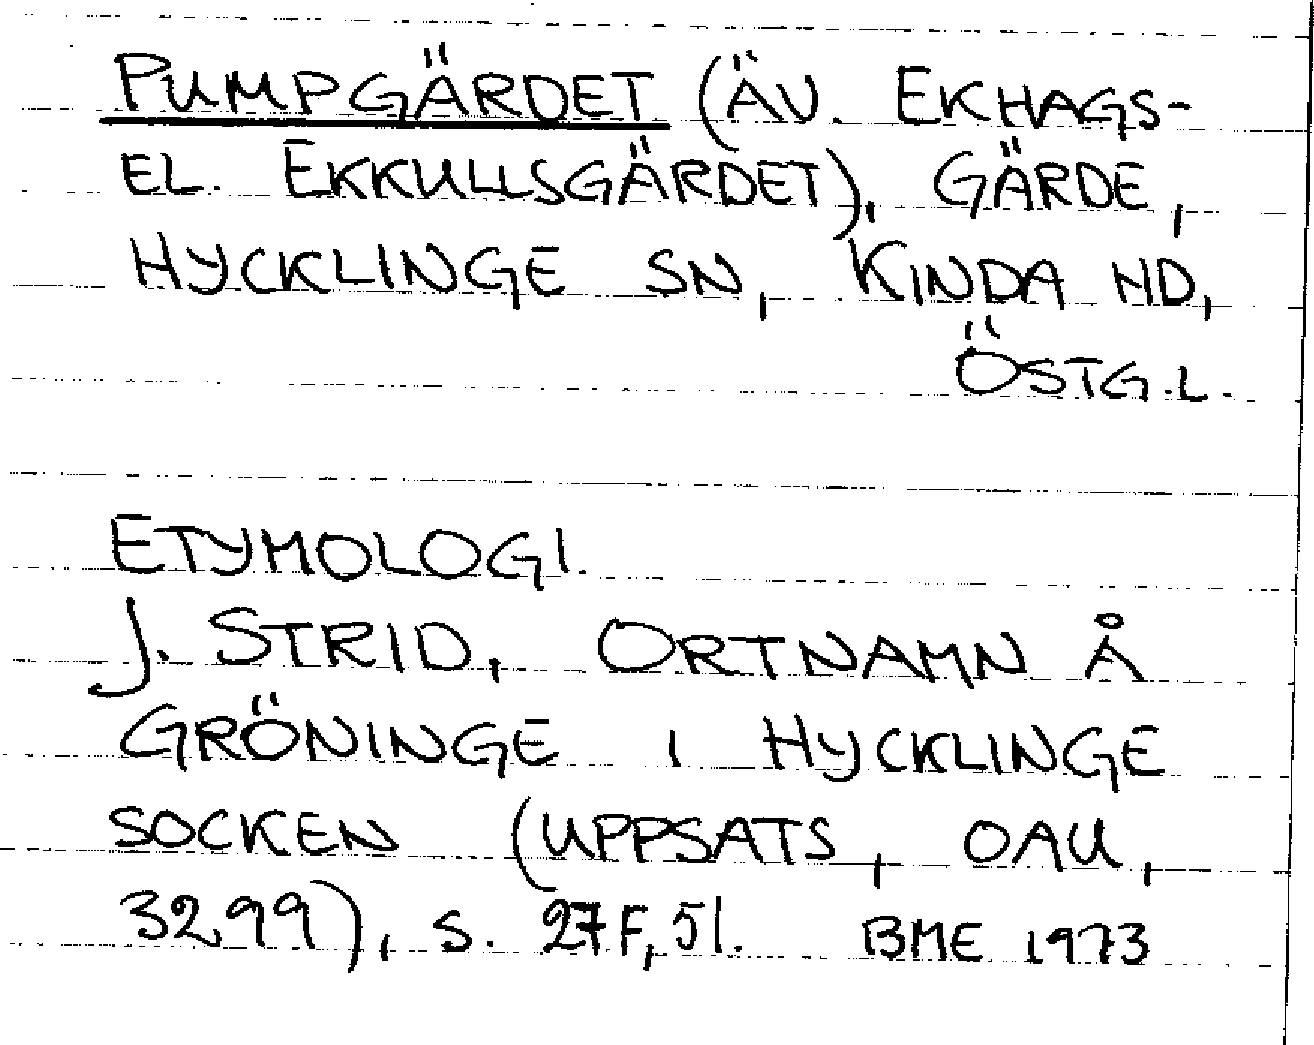 PUMPGÄRDET (ÄV. EKHAGS-
EL. EKKULLSGÄRDET), GÄRDE,
HYCKLINGE SN, KINDA HD,
ÖSTG.L.
ETYMOLOGI.
J. STRID, ORTNAMN Å
GRÖNINGE I HYCKLINGE
SOCKEN (UPPSATS, OAU,
3299), S. 27F, 51. BME 1973